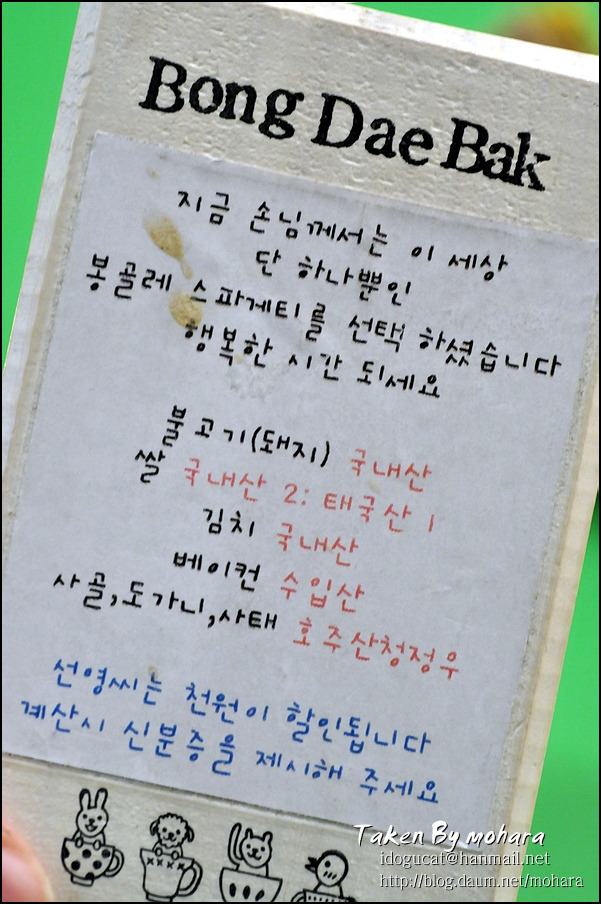 Bong Dae Bak
지금 손님께서는 이 세상
단 하나뿐인
봉골레 스파게티를 선택 하셨습니다
행복한 시간 되세요
불고기(돼지) 국내산
쌀 국내산 2: 태국산 1
김치 국내산
베이컨 수입산
사골,도가니,사태 호주산청정우
선영씨는 천원이 할인됩니다
계산시 신분증을 제시해 주세요
Taken By mohara
idogucat@hanmail.net
http://blog.daum.net/mohara